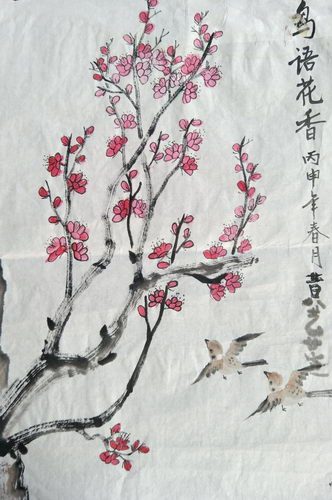 鸟语花香
丙申年春月